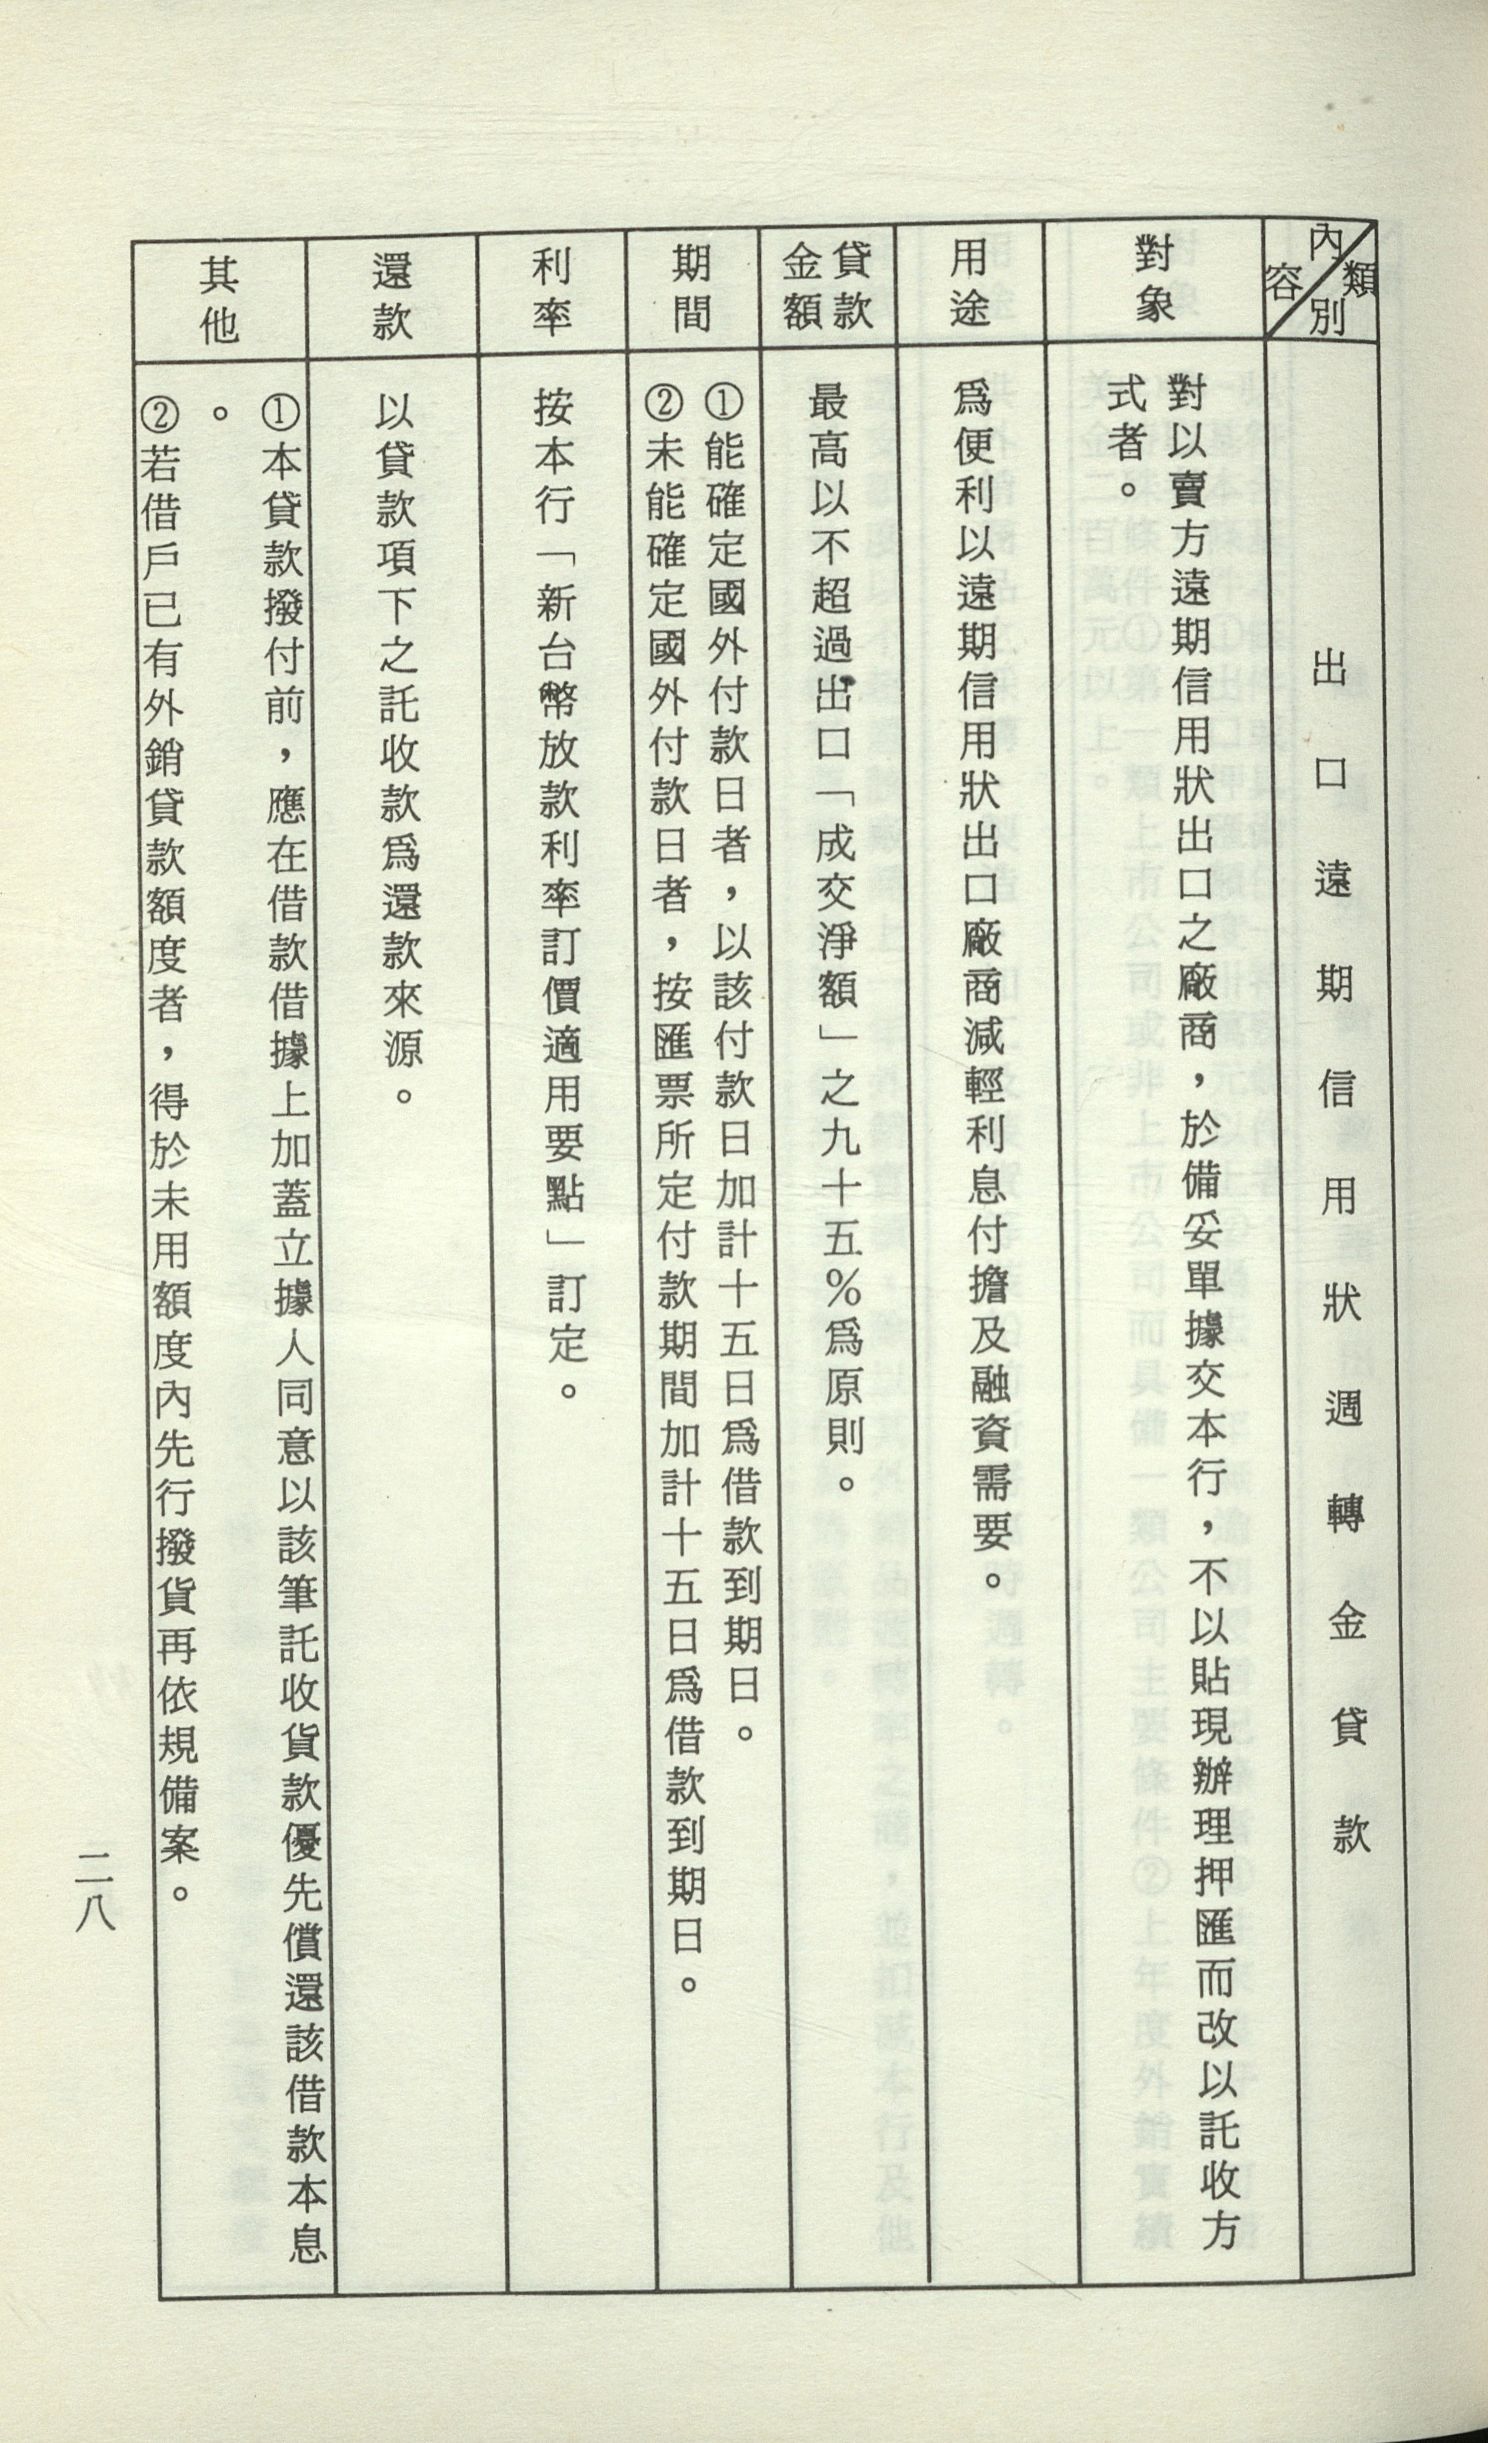 類別
內容
出口遠期信用狀週轉金貸款
對象
對以賣方遠期信用狀出口之廠商，於備妥單據交本行，不以貼現辦理押匯而改以託收方
式者。
用途
爲便利以遠期信用狀出口廠商減輕利息付擔及融資需要。
貸款
金額
最高以不超過出口「成交淨額」之九十五％爲原則。
期間
①能確定國外付款日者，以該付款日加計十五日爲借款到期日。
②未能確定國外付款日者，按匯票所定付款期間加計十五日爲借款到期日。
利率
按本行「新台幣放款利率訂價適用要點」訂定。
還款
以貸款項下之託收款爲還款來源。
其他
①本貸款撥付前，應在借款借據上加蓋立據人同意以該筆託收貨款優先償還該借款本息
。
②若借戶已有外銷貸款額度者，得於未用額度內先行撥貨再依規備案。
二八